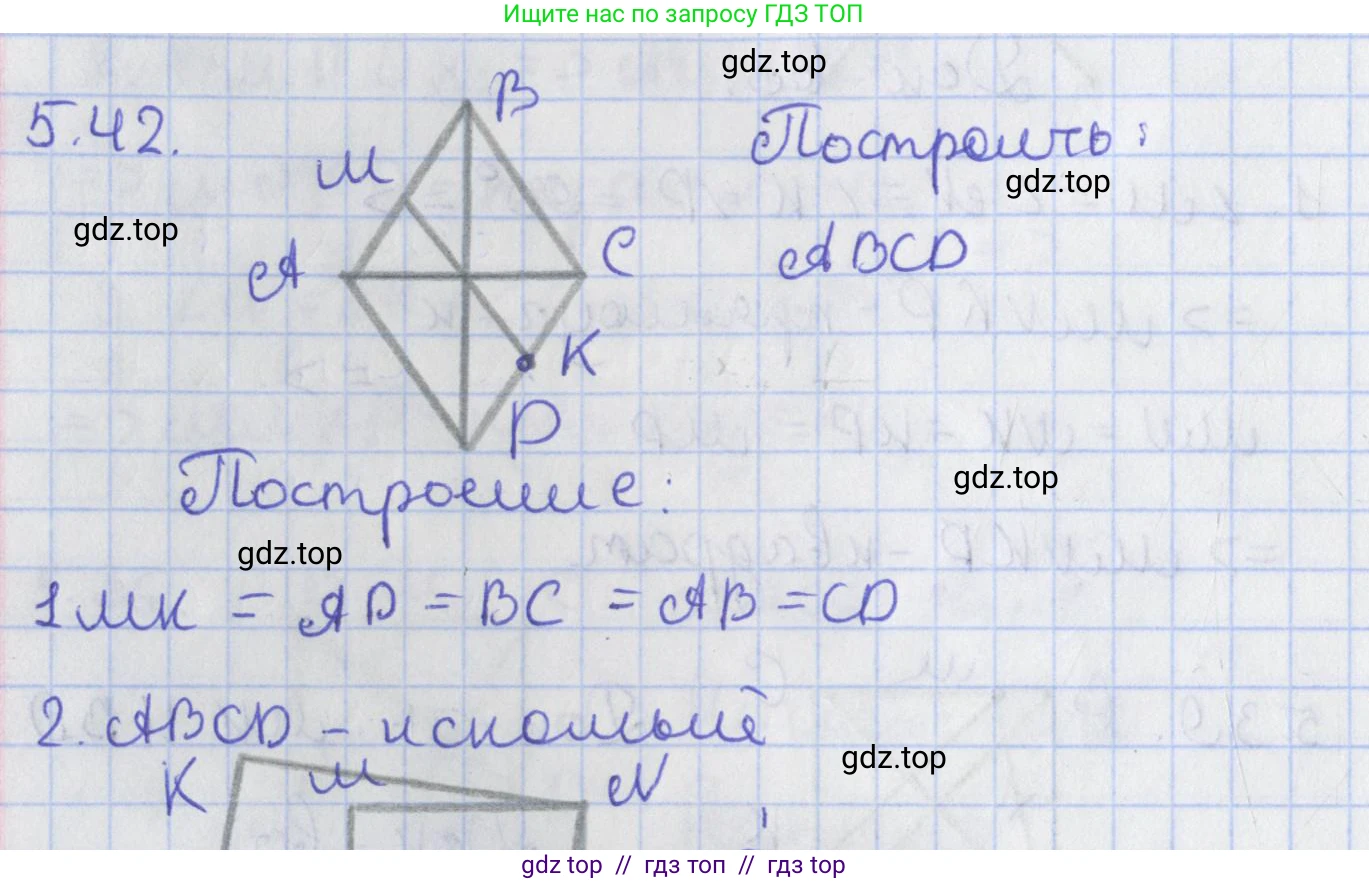 Ищите нас по запросу ГДЗ ТОП
gdz.top
5.42.
B
Построить:
M
gdz.top
gdz.top
A
C
ABCD
K
D
Построение:
gdz.top
gdz.top
1 MK = AD = BC = AB = CD
2. ABCD – искомый
gdz.top
K
M
N
gdz top // гдз топ // гдз top